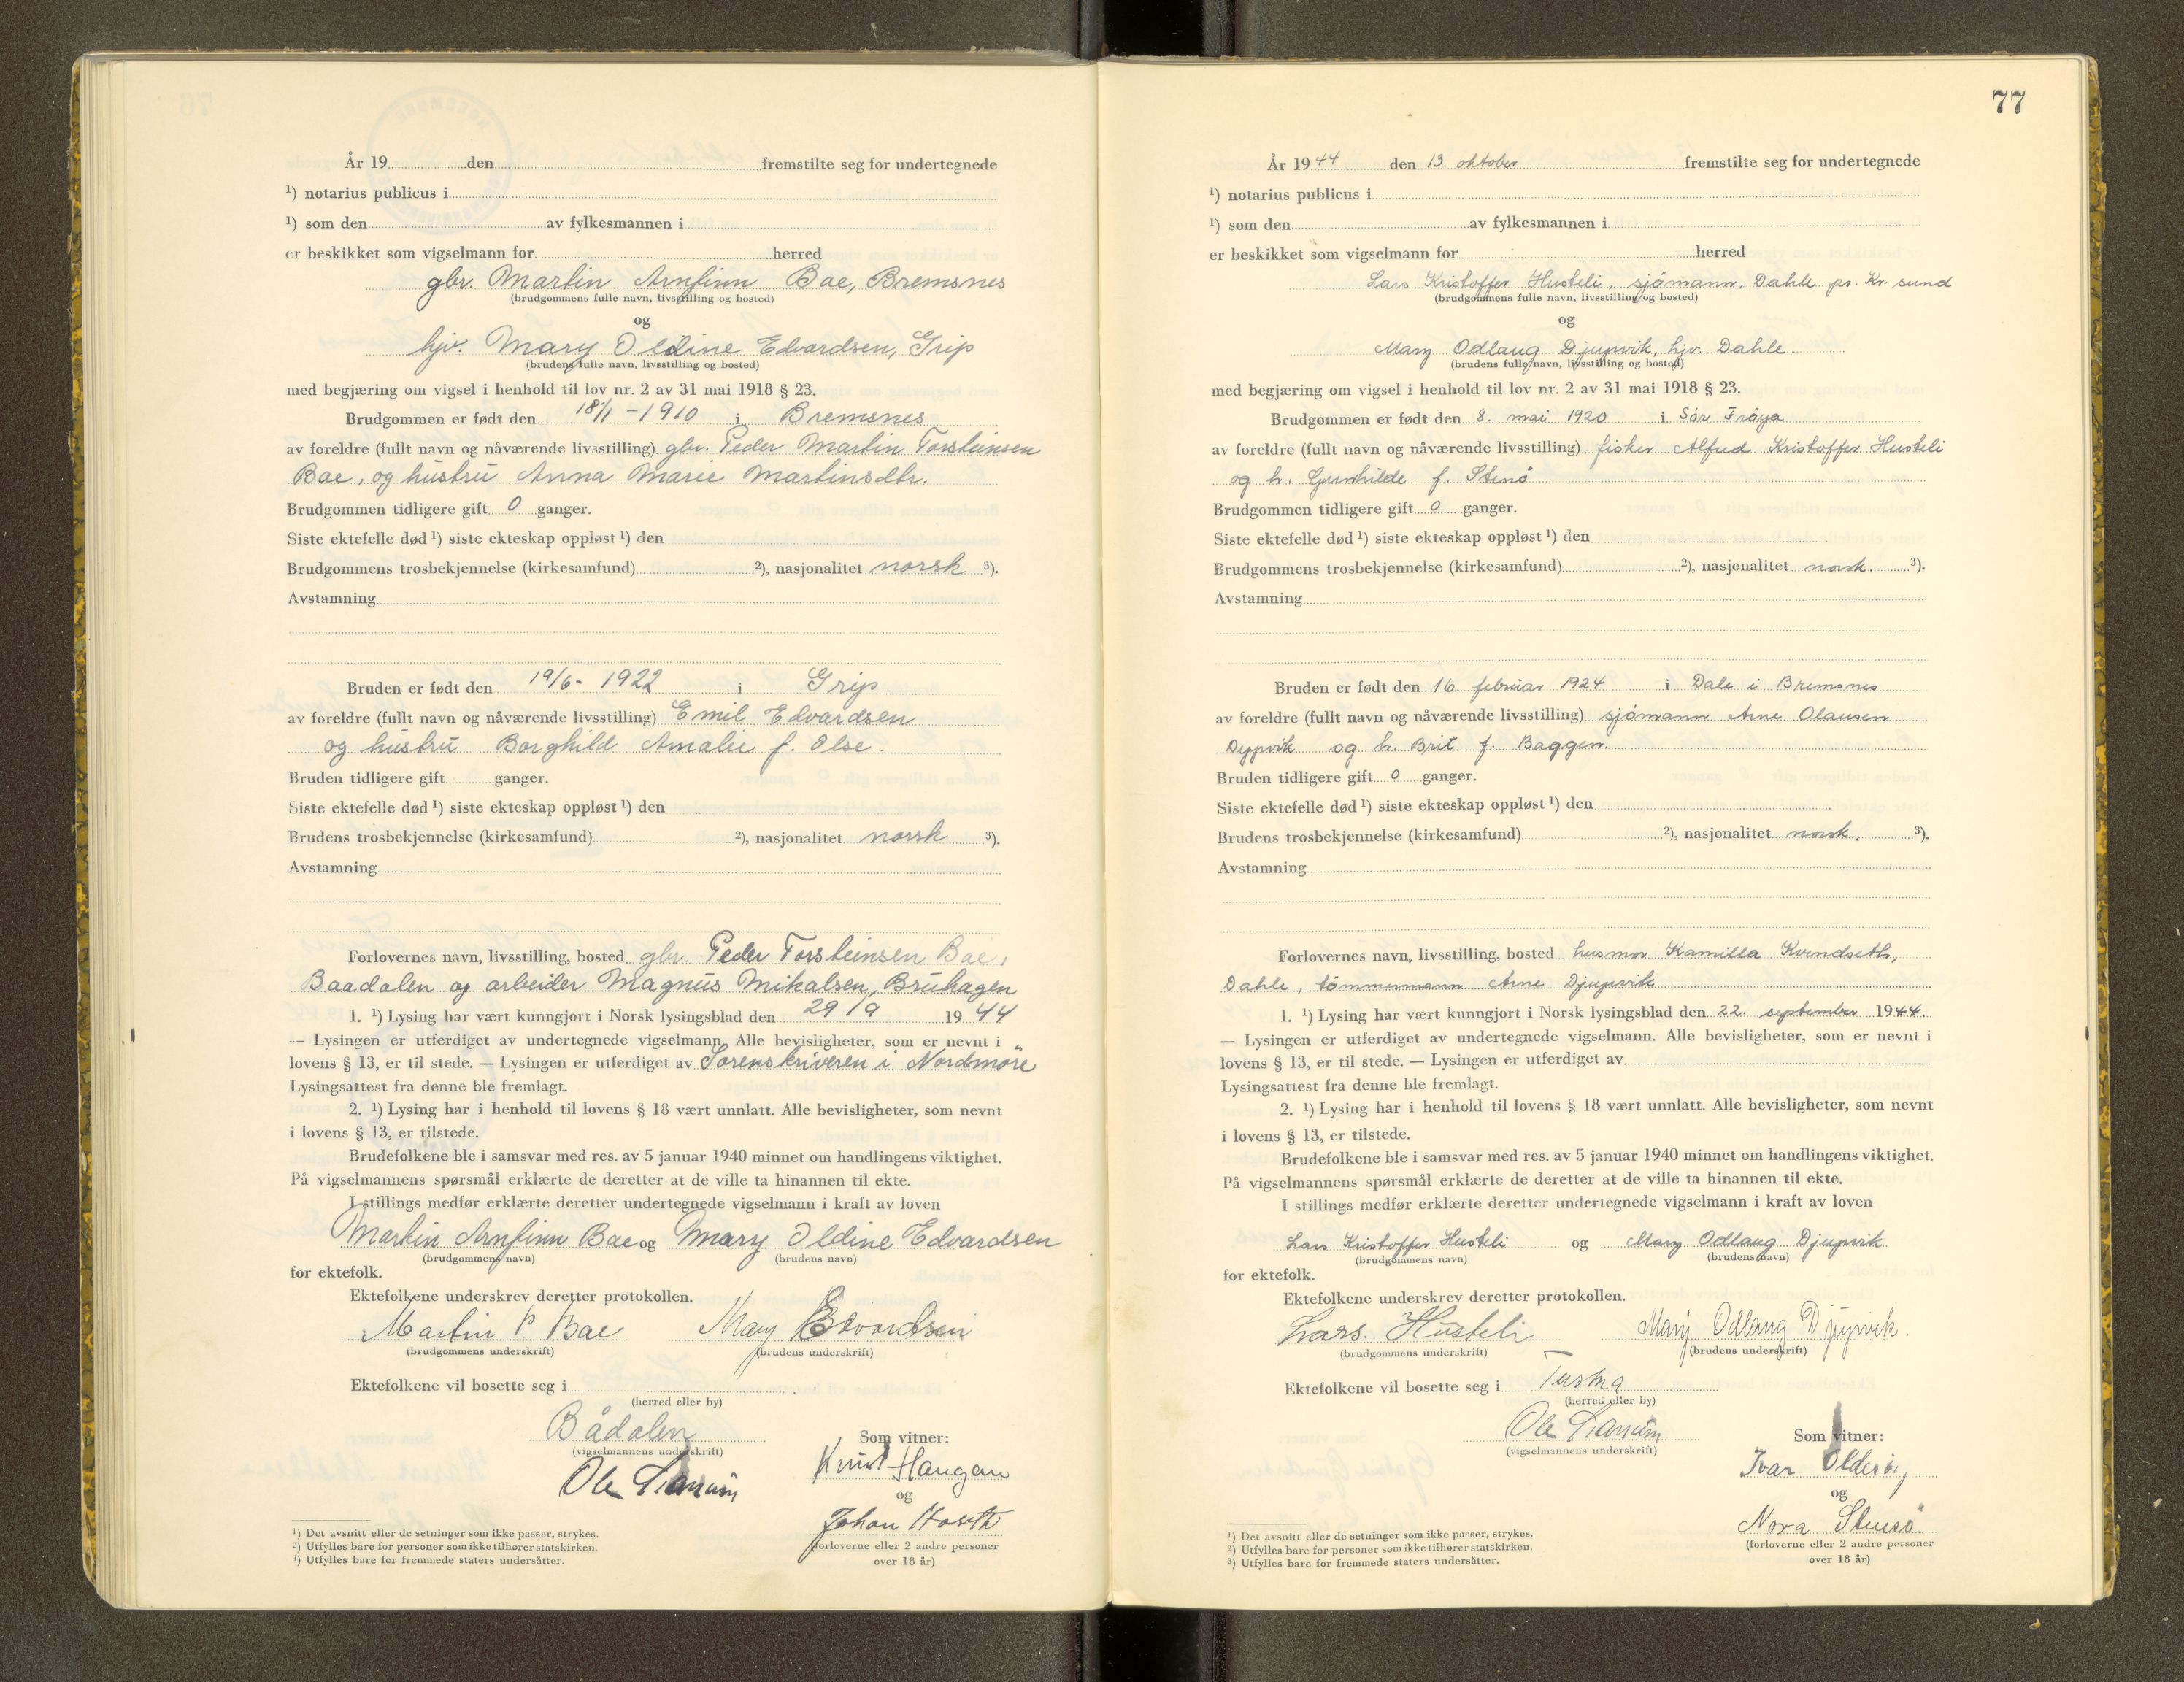 År 19 den fremstilte seg for undertegnede
¹) notarius publicus i
¹) som den av fylkesmannen i
er beskikket som vigselmann for herred
gbr. Martin Arnfinn Bae, Bremsnes
(brudgommens fulle navn, livsstilling og bosted)
og
hjv. Mary Oldine Edvardsen, Grip
(brudens fulle navn, livsstilling og bosted)
med begjæring om vigsel i henhold til lov nr. 2 av 31 mai 1918 § 23.
Brudgommen er født den 18/1 - 1910 i Bremsnes
av foreldre (fullt navn og nåværende livsstilling) gbr. Peder Martin Torsteinsen
Bae, og hustru Anna Marie Martinsdtr.
Brudgommen tidligere gift 0 ganger.
Siste ektefelle død ¹) siste ekteskap oppløst ¹) den
Brudgommens trosbekjennelse (kirkesamfund) ²), nasjonalitet norsk ³).
Avstamning
Bruden er født den 19/6 - 1922 i Grip
av foreldre (fullt navn og nåværende livsstilling) Emil Edvardsen
og hustru Borghild Amalie f. Olse.
Bruden tidligere gift 0 ganger.
Siste ektefelle død ¹) siste ekteskap oppløst ¹) den
Brudens trosbekjennelse (kirkesamfund) ²), nasjonalitet norsk ³).
Avstamning
Forlovernes navn, livsstilling, bosted gbr. Peder Torsteinsen Bae,
Baadalen og arbeider Magnus Mikalsen, Bruhagen
1. ¹) Lysing har vært kunngjort i Norsk lysingsblad den 29/9 1944
— Lysingen er utferdiget av undertegnede vigselmann. Alle bevisligheter, som er nevnt i
lovens § 13, er til stede. — Lysingen er utferdiget av Sorenskriveren i Nordmøre
Lysingsattest fra denne ble fremlagt.
2. ¹) Lysing har i henhold til lovens § 18 vært unnlatt. Alle bevisligheter, som nevnt
i lovens § 13, er tilstede.
Brudefolkene ble i samsvar med res. av 5 januar 1940 minnet om handlingens viktighet.
På vigselmannens spørsmål erklærte de deretter at de ville ta hinannen til ekte.
I stillings medfør erklærte deretter undertegnede vigselmann i kraft av loven
Martin Arnfinn Bae og Mary Oldine Edvardsen
(brudgommens navn) (brudens navn)
for ektefolk.
Ektefolkene underskrev deretter protokollen.
Martin P. Bae Mary Edvardsen
(brudgommens underskrift) (brudens underskrift)
Ektefolkene vil bosette seg i
(herred eller by)
Bådalen
(vigselmannens underskrift)
Som vitner:
Ole Knut Haugan
og
Johan
(forloverne eller 2 andre personer
over 18 år)
¹) Det avsnitt eller de setninger som ikke passer, strykes.
²) Utfylles bare for personer som ikke tilhører statskirken.
³) Utfylles bare for fremmede staters undersåtter.
77
År 1944 den 13. oktober fremstilte seg for undertegnede
¹) notarius publicus i
¹) som den av fylkesmannen i
er beskikket som vigselmann for herred
Lars Kristoffer Husteli, sjömann, Dahle pr. Kr. sund
(brudgommens fulle navn, livsstilling og bosted)
og
Mary Odlaug Djupvik, hjv. Dahle.
(brudens fulle navn, livsstilling og bosted)
med begjæring om vigsel i henhold til lov nr. 2 av 31 mai 1918 § 23.
Brudgommen er født den 8. mai 1920 i Sör Fröya
av foreldre (fullt navn og nåværende livsstilling) fisker Alfred Kristoffer Husteli
og h. Gunhilde f. Stenö
Brudgommen tidligere gift 0 ganger.
Siste ektefelle død ¹) siste ekteskap oppløst ¹) den
Brudgommens trosbekjennelse (kirkesamfund) ²), nasjonalitet norsk. ³).
Avstamning
Bruden er født den 16. februar 1924 i Dale i Bremsnes
av foreldre (fullt navn og nåværende livsstilling) sjömann Arne Olausen
Dypvik og h. Brit f. Baggen.
Bruden tidligere gift 0 ganger.
Siste ektefelle død ¹) siste ekteskap oppløst ¹) den
Brudens trosbekjennelse (kirkesamfund) ²), nasjonalitet norsk. ³).
Avstamning
Forlovernes navn, livsstilling, bosted husmor Kamilla Kvendseth,
Dahle, tömmermann Arne Djupvik
1. ¹) Lysing har vært kunngjort i Norsk lysingsblad den 22. september 1944.
— Lysingen er utferdiget av undertegnede vigselmann. Alle bevisligheter, som er nevnt i
lovens § 13, er til stede. — Lysingen er utferdiget av
Lysingsattest fra denne ble fremlagt.
2. ¹) Lysing har i henhold til lovens § 18 vært unnlatt. Alle bevisligheter, som nevnt
i lovens § 13, er tilstede.
Brudefolkene ble i samsvar med res. av 5 januar 1940 minnet om handlingens viktighet.
På vigselmannens spørsmål erklærte de deretter at de ville ta hinannen til ekte.
I stillings medfør erklærte deretter undertegnede vigselmann i kraft av loven
Lars Kristoffer Husteli og Mary Odlaug Djupvik
(brudgommens navn) (brudens navn)
for ektefolk.
Ektefolkene underskrev deretter protokollen.
Lars. Husteli Mary Odlaug Djupvik.
(brudgommens underskrift) (brudens underskrift)
Ektefolkene vil bosette seg i Tustna
(herred eller by)
Ole
(vigselmannens underskrift)
Som vitner:
Ivar
og
Nora
(forloverne eller 2 andre personer
over 18 år)
¹) Det avsnitt eller de setninger som ikke passer, strykes.
²) Utfylles bare for personer som ikke tilhører statskirken.
³) Utfylles bare for fremmede staters undersåtter.